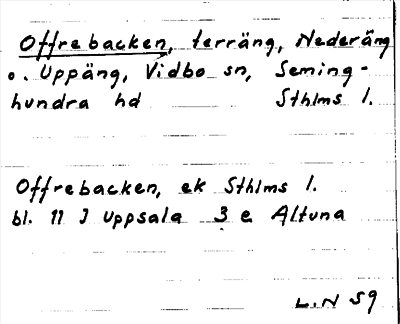 Offrebacken, terräng, Nederäng
o. Uppäng, Vidbo sn, Seming-
hundra hd Sthlms l.
Offrebacken, ek Sthlms l.
bl. 11 J Uppsala 3 e Altuna
L.N 59